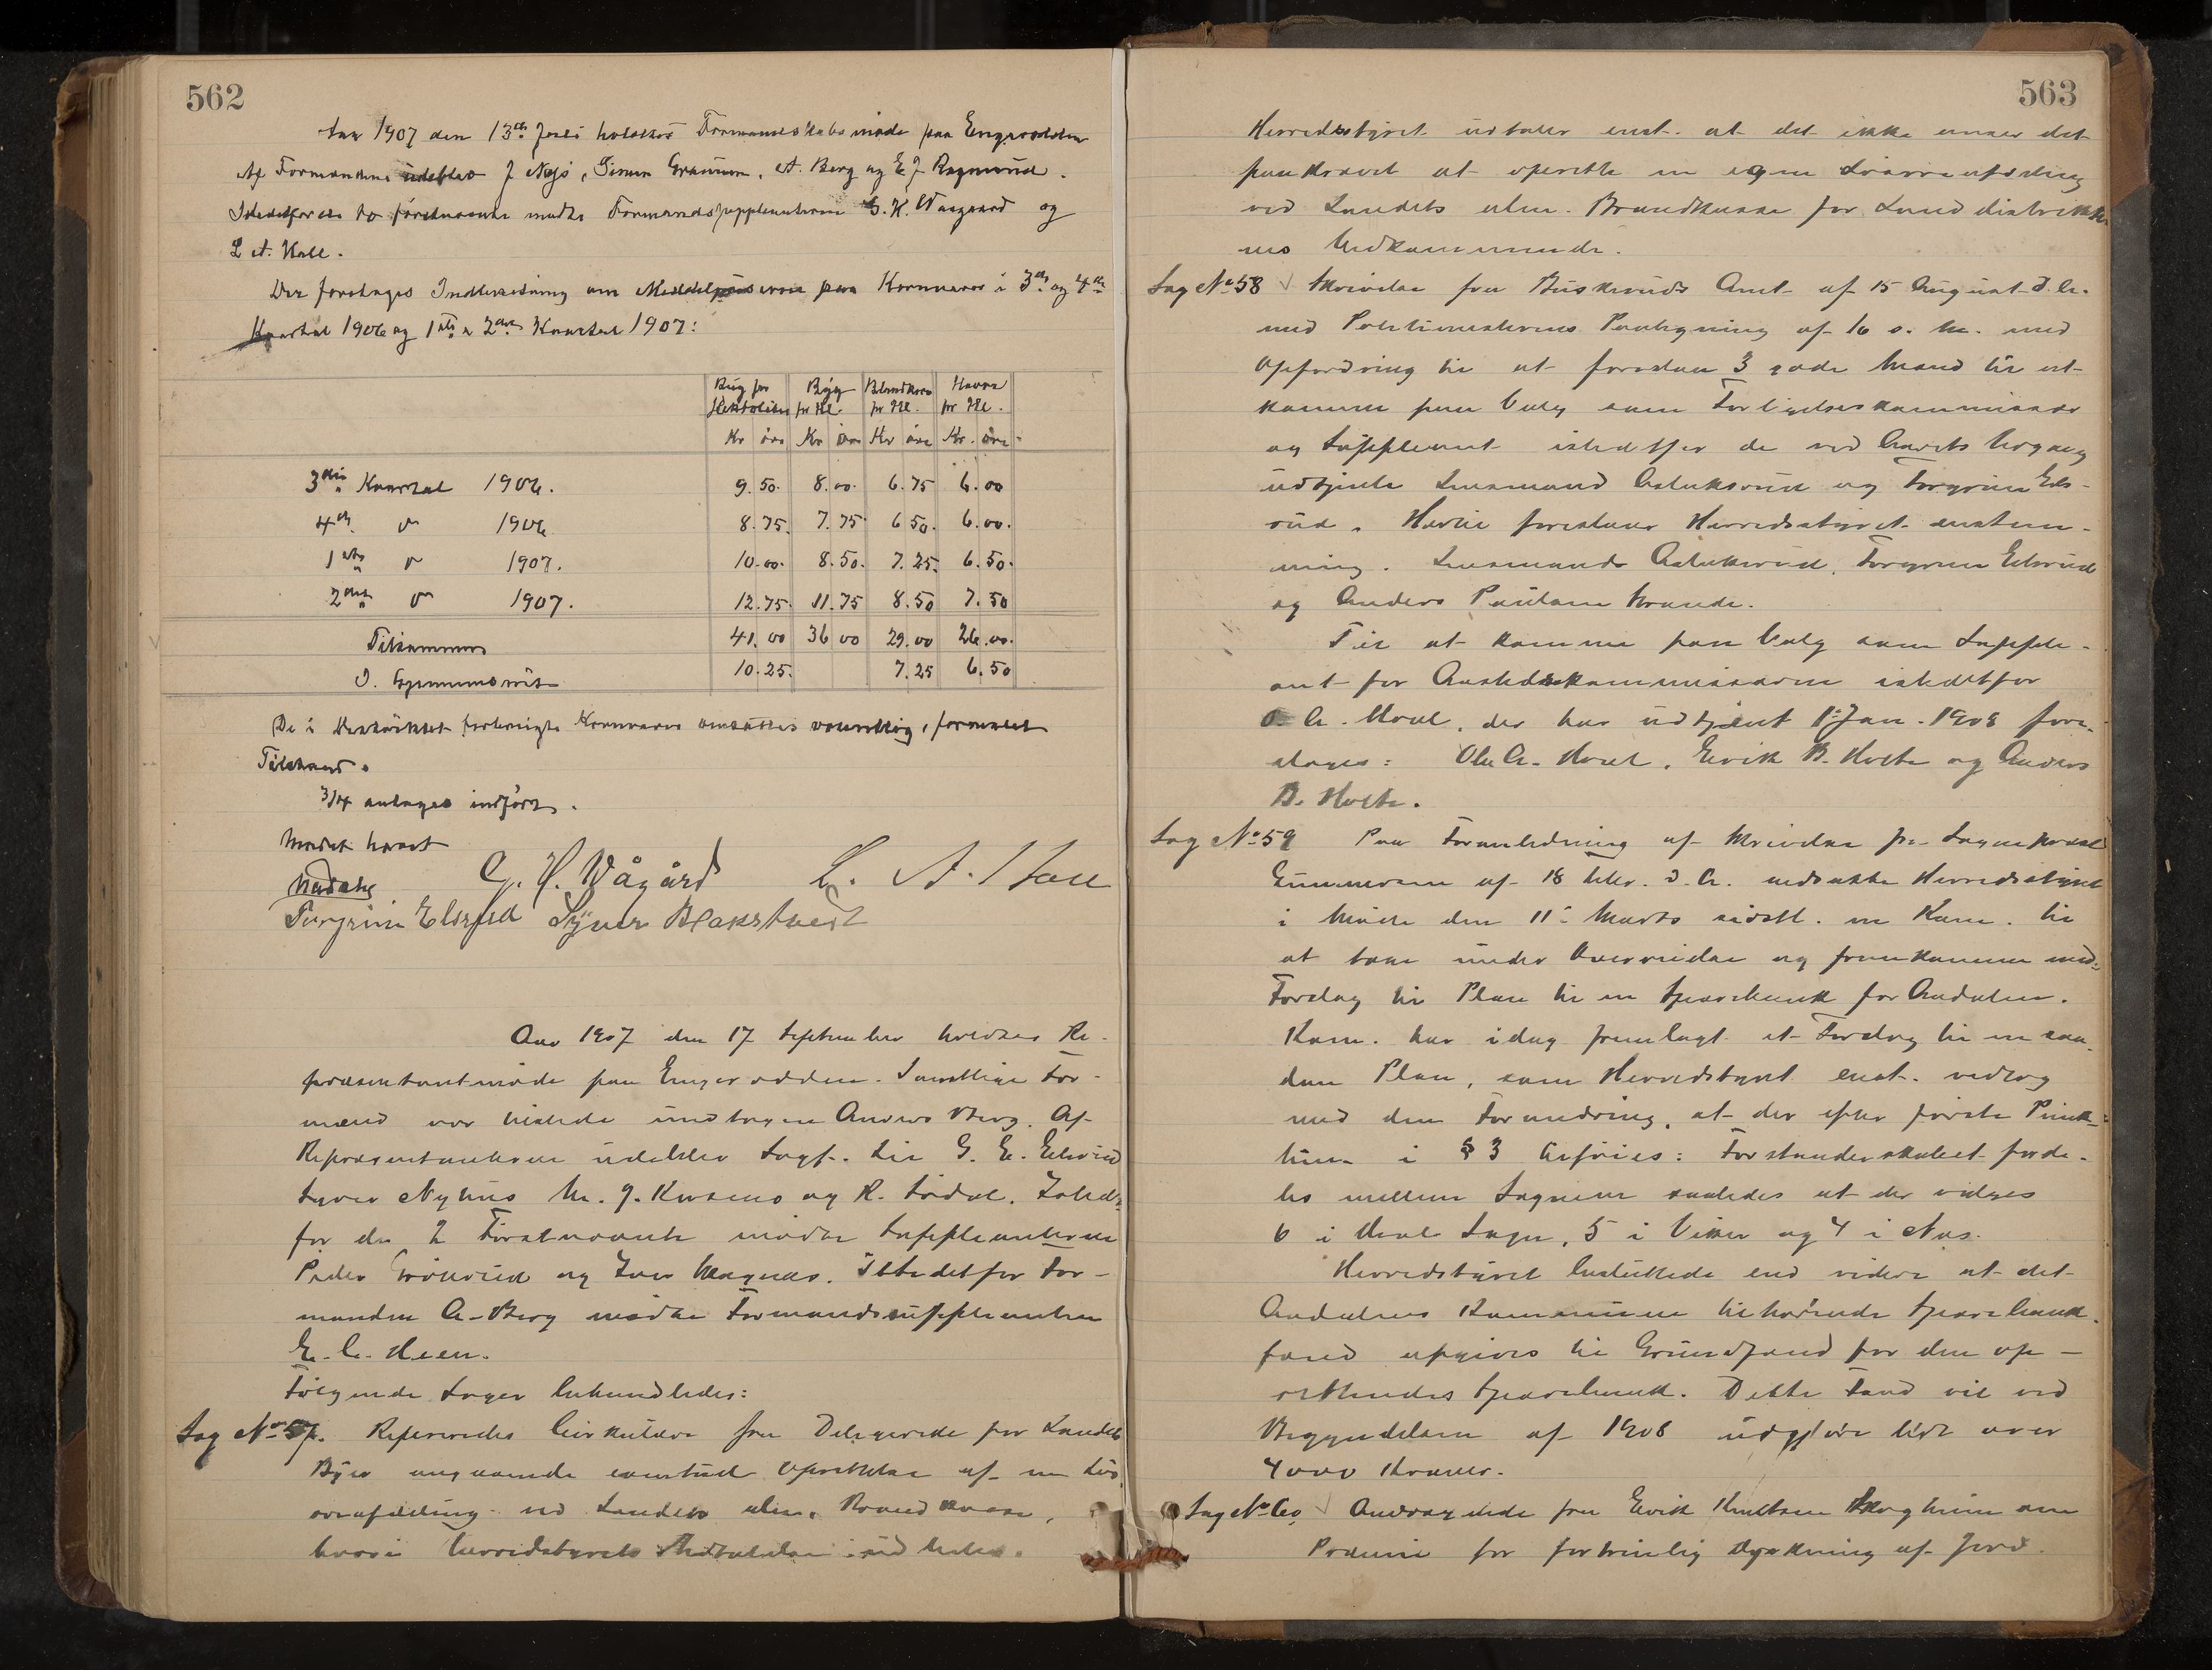 562
Aar 1907 den 13de Juli holdtes Formandskabsmøde paa Engerodden
Af Formændene udeblev J Nejs, Simen Gransum, A. Berg og E J Ragnvrud.
Istedetfor de to førstnævnte mødte Formandssuppleanterne G. H. Waagaard og
L A. Hall.
Der foretoges Indberetning om Middelpriserne paa Kornvarer i 3die og 4de
Kvartal 1906 og 1ste og 2det Kvartal 1907:
Rug pr Hektoliter Byg pr Hl. Blandkorn pr Hl. Havre pr Hl.
Kr øre Kr øre Kr øre Kr. øre
3die Kvartal 1906. 9.50. 8.00. 6.75 6.00
4de " 1906 8.75. 7.75 6 50. 6.00.
1ste " 1907. 10.00. 8.50. 7.25. 6.50.
2det " 1907. 12.75. 11.75 8.50 7.50
Tilsammen 41.00 36 00 29.00 26.00.
I. Gjennemsnit 10.25. 7.25 6.50
De i Distriktet forbrugte Kornvarer omsættes i formalet
Tilstand.
3/4 antages indført.
Mødet hævet
G. H. Vågård L. A. Hall
Torgrim Elsrud Syver Bakstveit
Aar 1907 den 17 September holdtes Re-
præsentantmøde paa Engerodden. Samtlige For-
mænd var tilstede undtagen Anders Berg. Af
Repræsentanterne udeblev Sagf. Lie G. E. Elsrud
Syver Nyhus M. J. og R. Sødal. Isted-
for de 2 Førstnævnte mødte Suppleanterne
Peder Grønrud og Iver Istedetfor For-
manden A. Berg mødte Formandssuppleanten
E. C. Heen.
Følgende Sager behandledes:
Sag No 57. Refereredes Cirkulære fra Delegerede for Landets
Byer angaaende eventuel Oprettelse af en Liv
ved Landets alm. Brandkasse,
hvori Herredsstyrets Udtalelse udbedes.
563
Herredsstyret udtaler enst. at det ikke anser det
paakrævet at oprette en egen
ved Landets alm. Brandkasse for Landdistrikter-
nes Vedkommende.
Sag No 58 Skrivelse fra Buskeruds Amt af 15 August d. A.
med Politimesterens Paategning af 16 s. M. med
Opfordring til at foreslaa 3 gode Mænd til at
komme paa Valg som Forligelseskommissær
og Suppleant istedetfor de ved Aarets Udgang
udtjente Lensmand Aslaksrud og Torgrim Els-
rud. Hertil foreslaar Herredsstyret enstem-
mig. Lensmand Aslaksrud, Torgrim Elsrud
og Anders Paulsen
Til at komme paa Valg som Supple-
ant for istedetfor
O. A. Hovl, der har udtjent 1. Jan. 1908 fore-
slaaes: Ole A. Hovl, Erik B. Holte og Anders
B. Holte.
Sag No 59 Paa Foranledning af Skrivelse fra Sogneprest
Gunnersen af 18 d. A. nedsatte Herredsstyret
i Møde den 11. Marts sidstl. en Kom. til
at tage under Overveielse og fremkomme med
Forslag til Plan til en Sparebank for Aadalen.
Kom. har idag fremlagt et Forslag til en saa-
dan Plan, som Herredsstyret enst. vedtog
med den Forandring, at der efter første Punk-
tum i § 3 tilføies: Forstanderskabet forde-
les mellem Sognene saaledes at der vælges
6 i Hval Sogn, 5 i Viker og 4 i Nes.
Herredsstyret besluttede end videre at det
Aadalens Kommune tilhørende Sparebank-
fond afgives til Grundfond for den op-
rettendes Sparebank. Dette Fond vil ved
Begyndelsen af 1908 udgjøre lidt over
4000 Kroner.
Sag No 60. Andragende fra Erik Knutsen Skagheim om
Præmie for fortrinlig dyrkning af Jord.